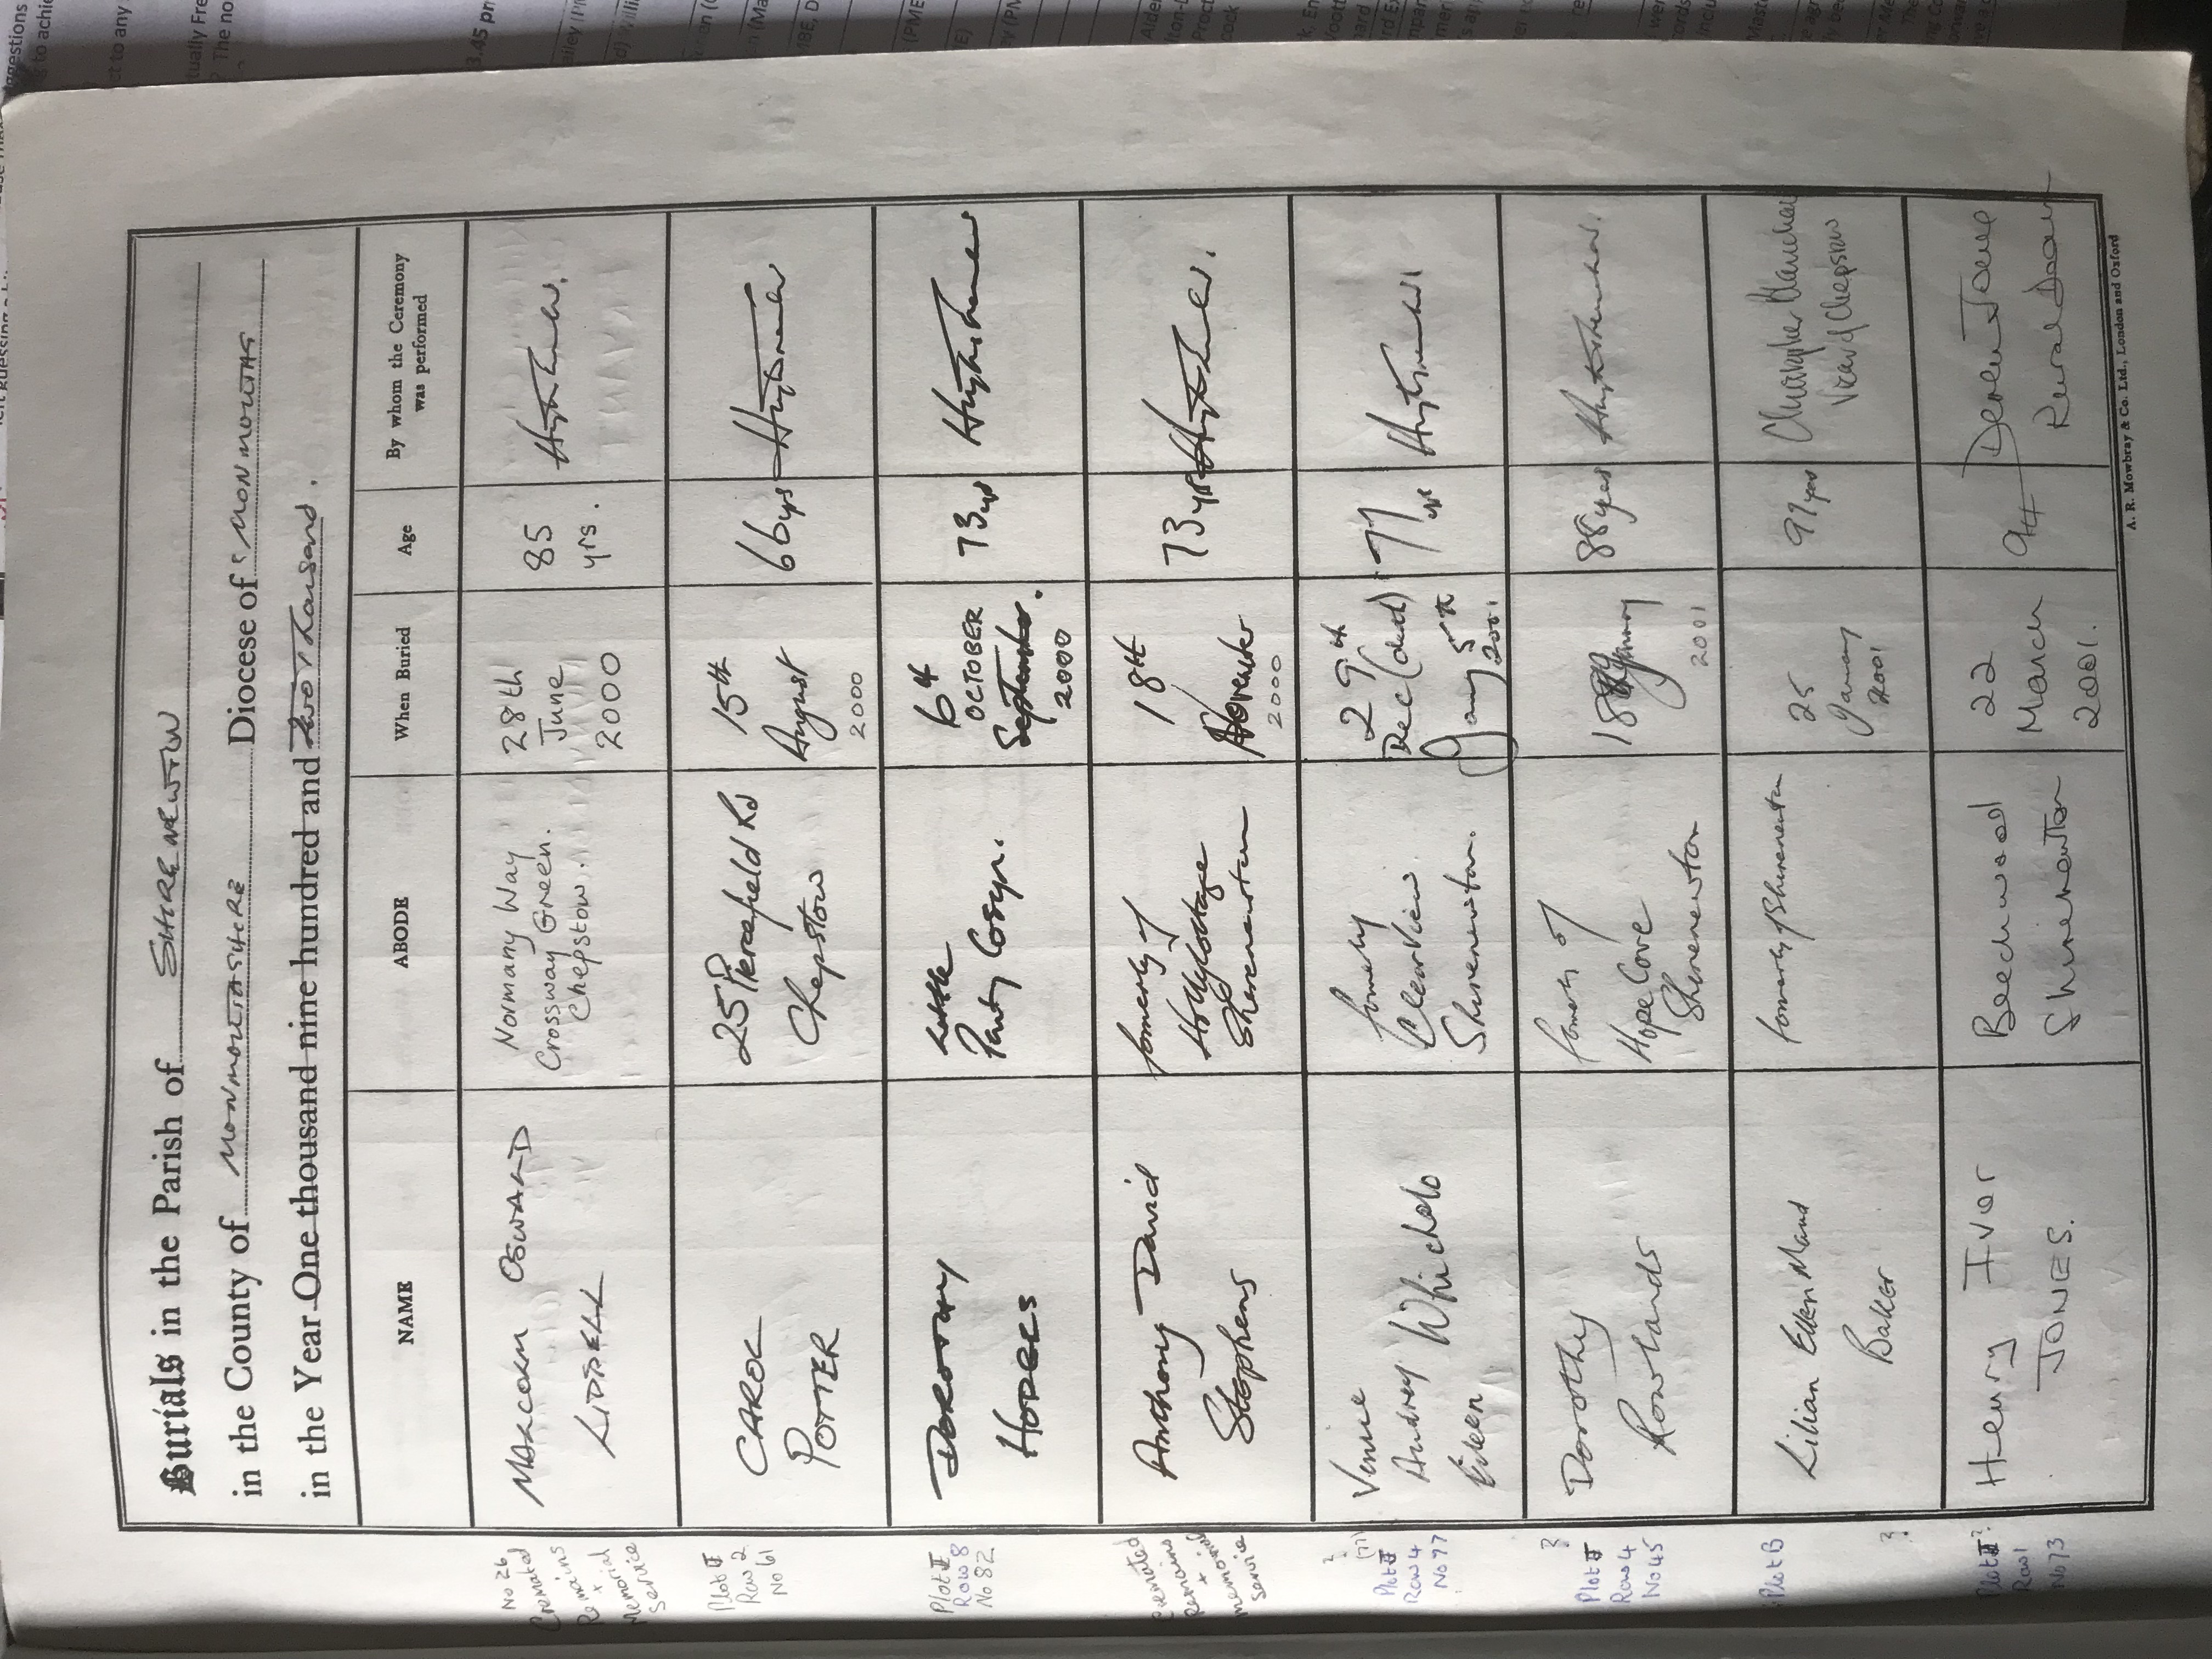 Burials in the Parish of SHIRENEWTON
in the County of MONMOUTHSHIRE Diocese of MONMOUTH
in the Year One thousand nine hundred and two thousand.
NAME ABODE When Buried Age By whom the Ceremony was performed
No 26
Cremated
Remains
+
Memorial
Service
MALCOLM OSWALD
LIDDELL
Normany Way
Crossway Green.
Chepstow.
28th
June
2000
85
yrs.
Plot II
Row 2
No 61
CAROL
POTTER
25 Piercefield Rd
Chepstow
15th
August
2000
66 yrs
Plot II
Row 8
No 82
DOROTHY
HODGES
Little
Panty Cosyn.
6th
OCTOBER
September.
2000
73 yrs
Cremated
Remains
+
memorial
service
Anthony David
Stephens
formerly of
Hollycottage
Shirenewton
18th
November
2000
73 yrs
?
(77)
Plot II
Row 4
No 77
Vennie
Audrey Whichelo
Eileen
formerly
Clearview
Shirenewton.
29th
Dec (died)
January 5th
2001
77 yrs
?
Plot II
Row 4
No 45
Dorothy
Rowlands
formerly of
Hope Cove
Shirenewton
18
January
2001
88 years
Plot B
?
Lilian Ellen Maud
Baker
formerly of Shirenewton
25
January
2001
91 yrs
Vicar of Chepstow
Plot II?
Row 1
No 73
Henry Ivor
JONES.
Beechwood
Shirenewton
22
March
2001.
94
Rural Dean
A. R. Mowbray & Co. Ltd., London and Oxford